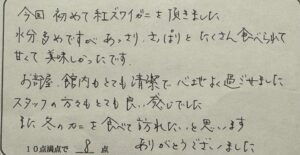 今回 初めて 紅ズワイガニを頂きました
水分多めですが あっさり、さっぱりと たくさん食べられて
甘くて 美味しかったです。
お部屋、館内もとても清潔で よく過ごせました
スタッフの方々もとても良い感じでした
また 冬のカニを食べて訪れたいと思います
10点満点で 8 点 ありがとうございました